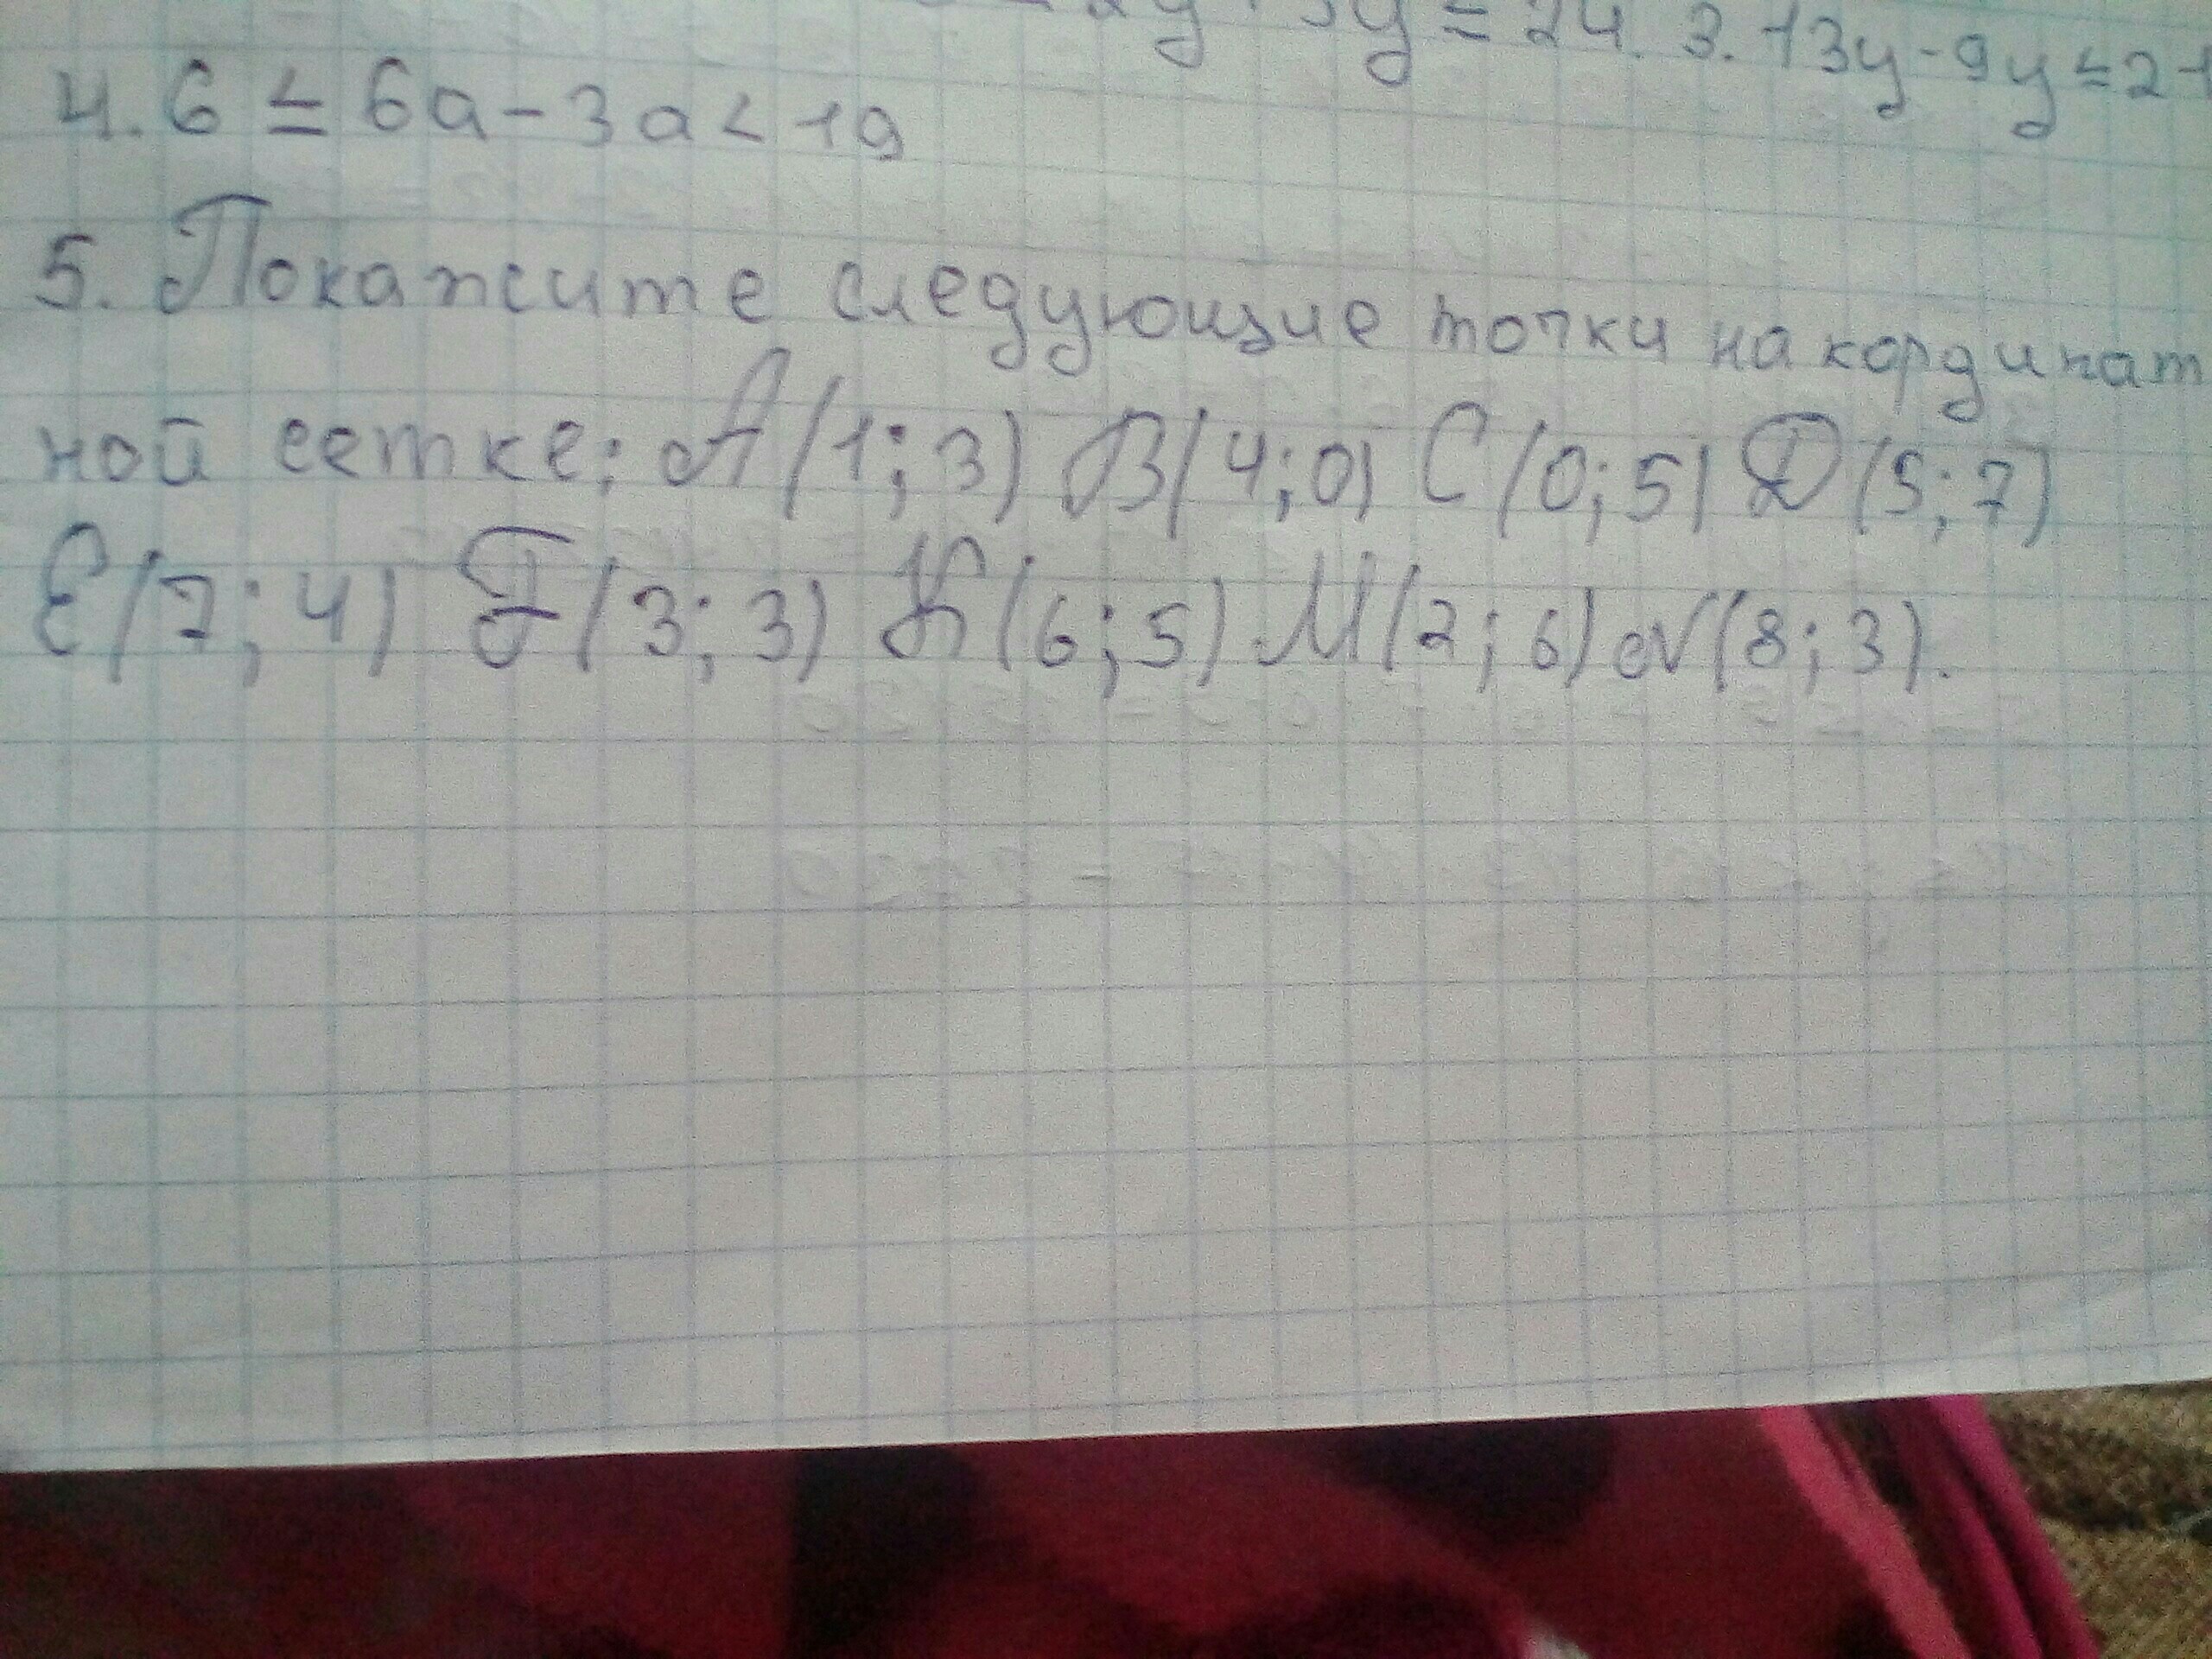 y = 24. 3. 13y - 9y ≤ 2
4. 6 ≤ 6a - 3a < 19
5. Покажите следующие точки на кординат
ной сетке: A(1; 3) B(4; 0) C(0; 5) D(5; 7)
E(7; 4) F(3; 3) K(6; 5) M(2; 6) N(8; 3).